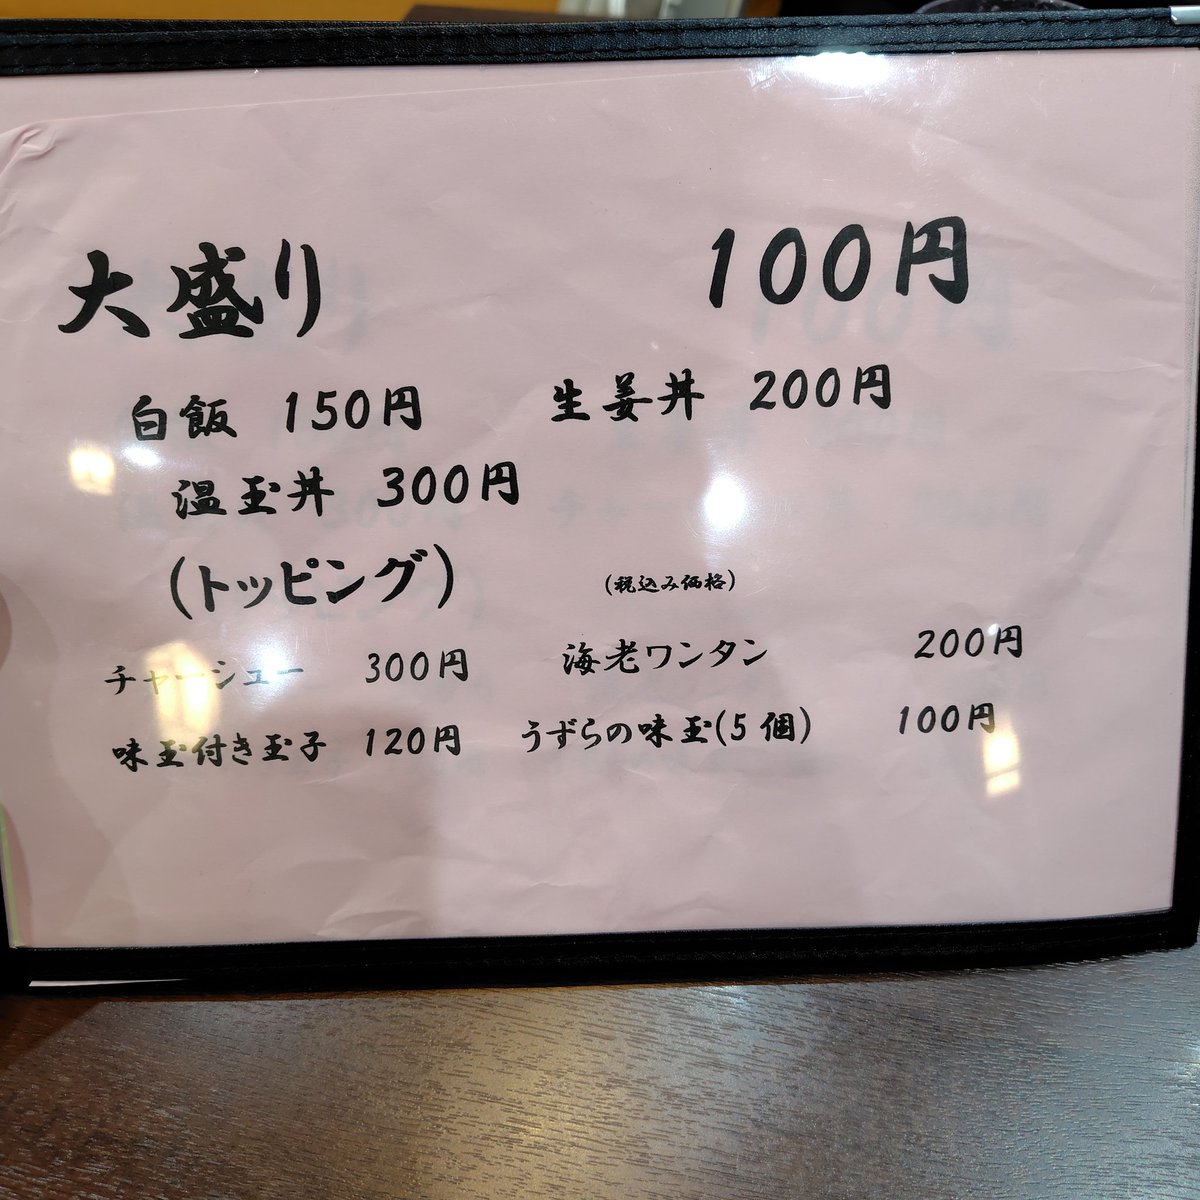 大盛り 100円
白飯 150円 生姜丼 200円
温玉丼 300円
(トッピング) (税込み価格)
チャーシュー 300円 海老ワンタン 200円
味玉付き玉子 120円 うずらの味玉(5個) 100円